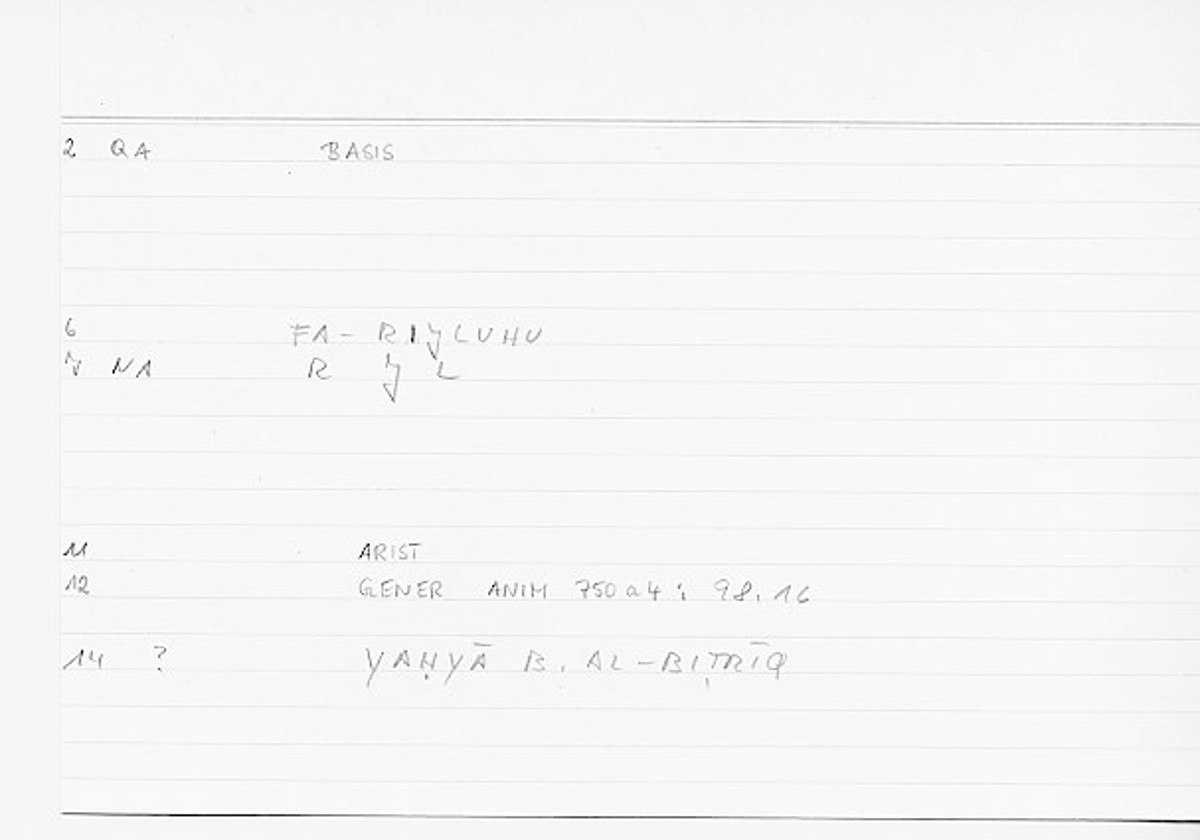 2 QA BASIS
6 FA- RIJLUHU
7 NA R J L
11 ARIST
12 GENER ANIM 750a4 ; 98.16
14 ? YAḤYĀ B. AL-BIṬRĪQ